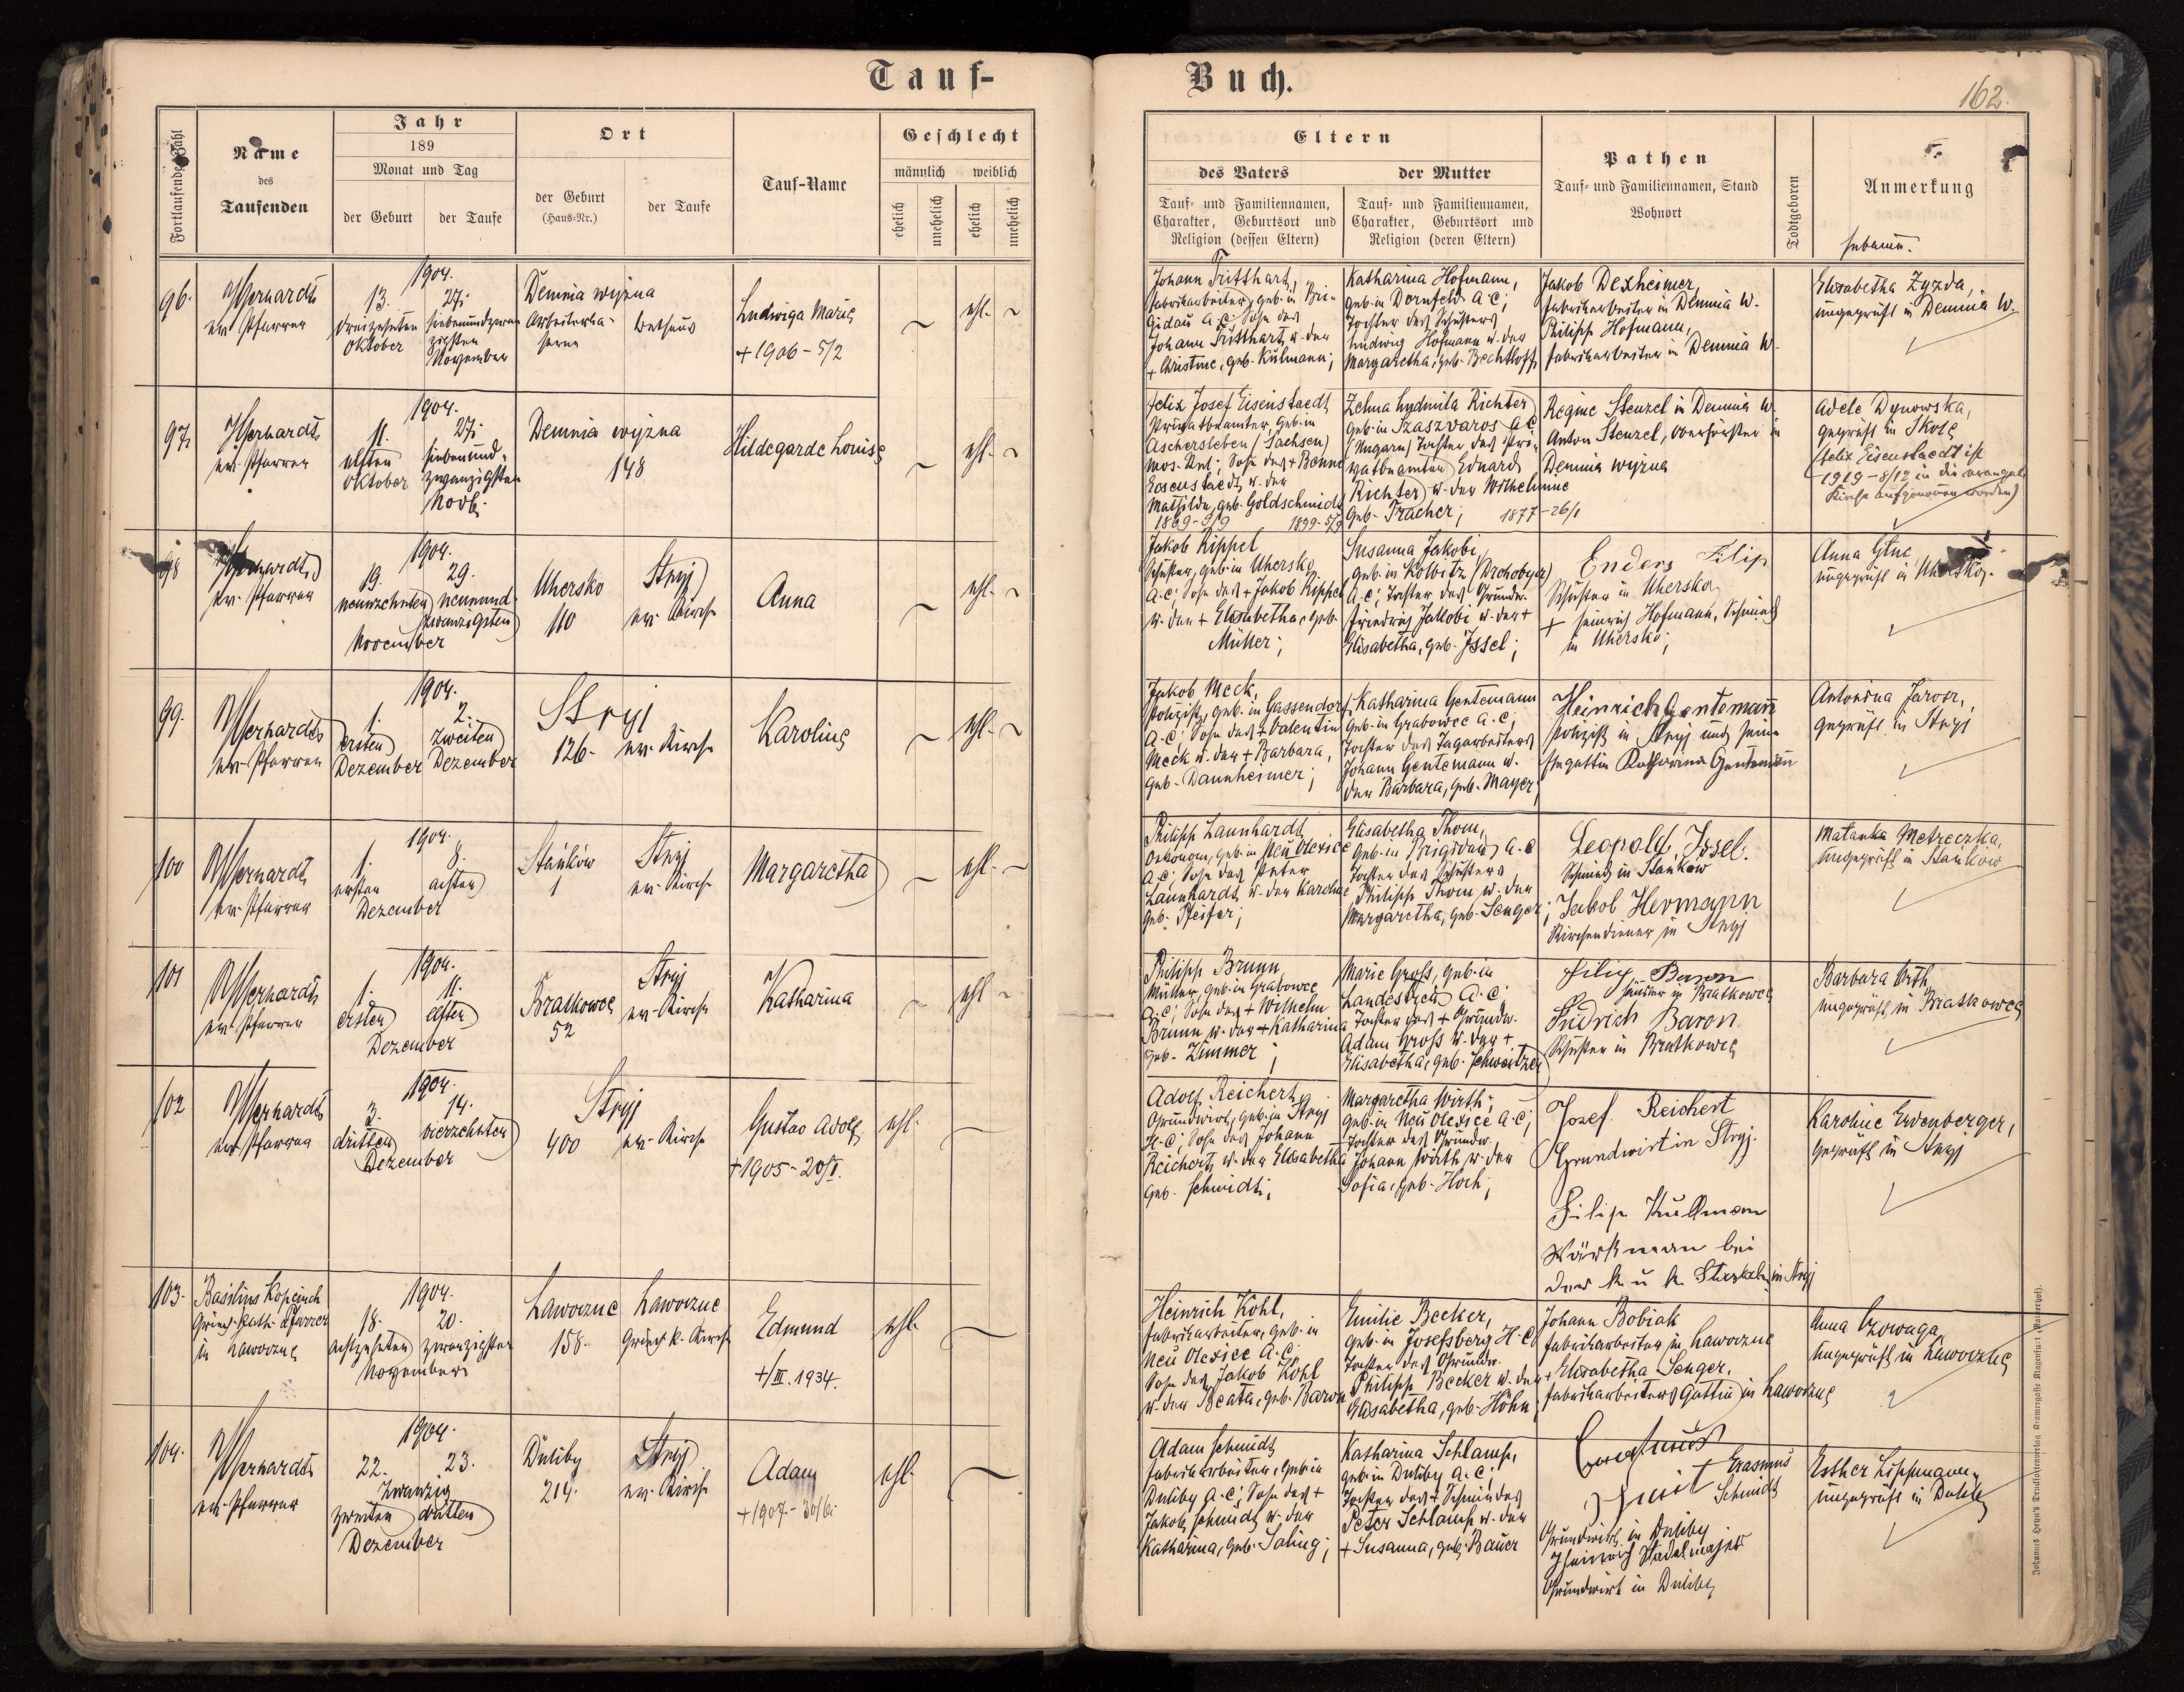 Tauf-
Buch.
162.
Fortlaufende Zahl
Name
des
Taufenden
Jahr
189
Monat und Tag
der Geburt
der Taufe
Ort
der Geburt
(Haus-Nr.)
der Taufe
Tauf-Name
Geschlecht
männlich
weiblich
ehelich
unehelich
ehelich
unehelich
Eltern
des Vaters
der Mutter
Tauf- und Familiennamen,
Charakter, Geburtsort und
Religion (dessen Eltern)
Tauf- und Familiennamen,
Charakter, Geburtsort und
Religion (deren Eltern)
Pathen
Tauf- und Familiennamen, Stand
Wohnort
Todtgeboren
Anmerkung
Hebamme.
96.
ev. Pfarrer
1904.
13.
27.
dreizehnten
siebenundzwan
zigsten
Oktober
November
Demnia wyżna
Arbeiterka-
serne
Bethaus
Ludwiga Marie
+ 1906 - 5/2
ehl.
Johann Tritthart,
Fabriksarbeiter, geb. in Bri-
gidau A.C.; Sohn des
Johann Tritthart u. der
+ Christine, geb. Kulmann;
Katharina Hofmann,
geb. in Dornfeld A.C.;
Tochter des Schusters
Ludwig Hofmann u. der
Margaretha, geb. Bechtloff
Jakob Dexheimer,
Fabriksarbeiter in Demnia W.
Philipp Hofmann,
Fabriksarbeiter in Demnia W.
Elisabetha Zyzda,
ungeprüft in Demnia W.
97.
ev. Pfarrer
1904.
11.
27.
elften
siebenund-
zwanzigsten
Oktober
Novb.
Demnia wyżna
148
Hildegarde Louise
ehl.
Felix Josef Eisenstaedt
Privatbeamter, geb. in
Aschersleben (Sachsen)
mos. Rel.; Sohn des +
Eisenstaedt u. der
Mathilde, geb. Goldschmidt
1869 - 9/9
1899 - 5/9
Zelma Ludmila Richter
geb. in Szaszvaros A.C.
(Ungarn) Tochter des Pri-
vatbeamten Eduard
Richter u. der Wilhelmine
geb. Tracher;
1877 - 26/1
Regine Stenzel in Demnia W.
Anton Stenzel, Oberförster in
Demnia wyżna
Adele Dynowska,
geprüft in Skole
(Felix Eisenstaedt ist
1919 - 8/12 in die evangel.
Kirche aufgenommen worden)
98
ev. Pfarrer
1904.
19.
29.
neunzehnten
neunund-
zwanzigsten
November
Uhersko
110
Stryj
ev. Kirche
Anna
ehl.
Jakob Kippel
Schuster, geb. in Uhersko
A.C.; Sohn des + Jakob Kippel
u. der + Elisabetha, geb.
Müller;
Susanna Jakobi,
geb. in Kolbitz (Drohobycz)
A.C.; Tochter des Grundw.
Friedrich Jakobi u. der +
Elisabetha, geb. Issel;
Enders Filip
Schuster in Uhersko
+ Heinrich Hofmann, Schmied
in Uhersko;
ungeprüft in Uhersko.
99.
ev. Pfarrer
1904.
1.
2.
ersten
zweiten
Dezember
Dezember
Stryj
126.
ev. Kirche
Karoline
ehl.
Jakob Meck,
Polizist, geb. in Gassendorf
A.C. Sohn des + Valentin
Meck u. der + Barbara,
geb. Dannheimer;
Katharina Gentemann
geb. in Grabowce A.C.;
Tochter des Tagarbeiters
Johann Gentemann u.
der Barbara, geb. Mayer;
Heinrich Gentemann
Polizist in Stryj und seine
Ehegattin Katharina Gentemann
Antonina Jarosz,
geprüft in Stryj
100
ev. Pfarrer
1904.
1.
8.
ersten
achten
Dezember
Stańków
1
Stryj
ev. Kirche
Margaretha
ehl.
Philipp Launhardt
Oekonom, geb. in Neu Olexice
A.C.; Sohn des Peter
Launhardt u. der Karoline
geb. Pfeifer;
Elisabetha Thom,
geb. in Brigidau A.C.
Tochter des Schusters
Philipp Thom u. der
Margaretha, geb. Senger;
Leopold Issel.
Schmied in Stańków
Jakob Hermann
Kirchendiener in Stryj
Matanka Metreczka,
ungeprüft in Stańków
101
ev. Pfarrer
1904.
1.
11.
ersten
elften
Dezember
Bratkowce
52
Stryj
ev. Kirche
Katharina
ehl
Philipp Brunn,
Müller, geb. in Grabowce
A.C.; Sohn des + Wilhelm
Brunn u. der + Katharina
geb. Zimmer;
Marie Gross, geb. in
Landestreu A.C.
Tochter des + Grundw.
Adam Gross u. der +
Elisabetha, geb. Schweitzer
Filip Baron
in Bratkowce
Fridrich Baron
Schuster in Bratkowce
Barbara Orth
ungeprüft in Bratkowce
102
ev. Pfarrer
1904.
3.
14.
dritten
vierzehnten
Dezember
Stryj
400
ev. Kirche
Gustav Adolf
+ 1905 - 20/I.
ehl.
Adolf Reichert
Grundwirt, geb. in Stryj
H.C.; Sohn des Johann
Reichert u. der Elisabetha
geb. Schmidt;
Margaretha Wirth;
geb. in Neu Olexice A.C.;
Tochter des Grundw.
Johann Wirth u. der
Sofia, geb. Hoch;
Josef Reichert
Grundwirt in Stryj.
Filip Kullmann
Wärkman bei
der k u k in Stryj
Karoline Ewenberger,
geprüft in Stryj
103.
Basilius Kopcinch
Griech. kath. Pfarrer
in Lawoczne
1904.
18.
20.
achtzehnten
zwanzigsten
November
Lawoczne
158.
Lawoczne
Griech k. Kirche
Edmund
+/III. 1934.
ehl.
Heinrich Kohl,
Fabriksarbeiter, geb. in
Neu Olexice A.C.
Sohn des Jakob Kohl
u. der Beata, geb. Baron
Emilie Becker,
geb. in Josefsberg H.C.
Tochter des Grundw.
Philipp Becker u. der
Elisabetha, geb. Höhn
Johann Bobiak
Fabriksarbeiter in Lawoczne
+ Elisabetha Senger,
Fabriksarbeiters Gattin in Lawoczne
Anna Czowaga,
ungeprüft in Lawoczne
104.
ev. Pfarrer
1904.
22.
23.
Zwanzig
zweiten
dritten
Dezember
Duliby
214.
Stryj
ev. Kirche
Adam
+ 1907 - 30/6.
ehl.
Adam Schmidt
Fabriksarbeiter, geb. in
Duliby A.C.; Sohn des +
Jakob Schmidt u. der
Katharina, geb. Saling;
Katharina Schlamp,
geb. in Duliby A.C.;
Tochter des + Schmiedes
Peter Schlamp u. der
+ Susanna, geb. Bauer
Erasmus
Schmidt
Grundwirt in Duliby
Heinrich Stadelmajer
Grundwirt in Duliby
Esther Lippmann,
ungeprüft in Duliby